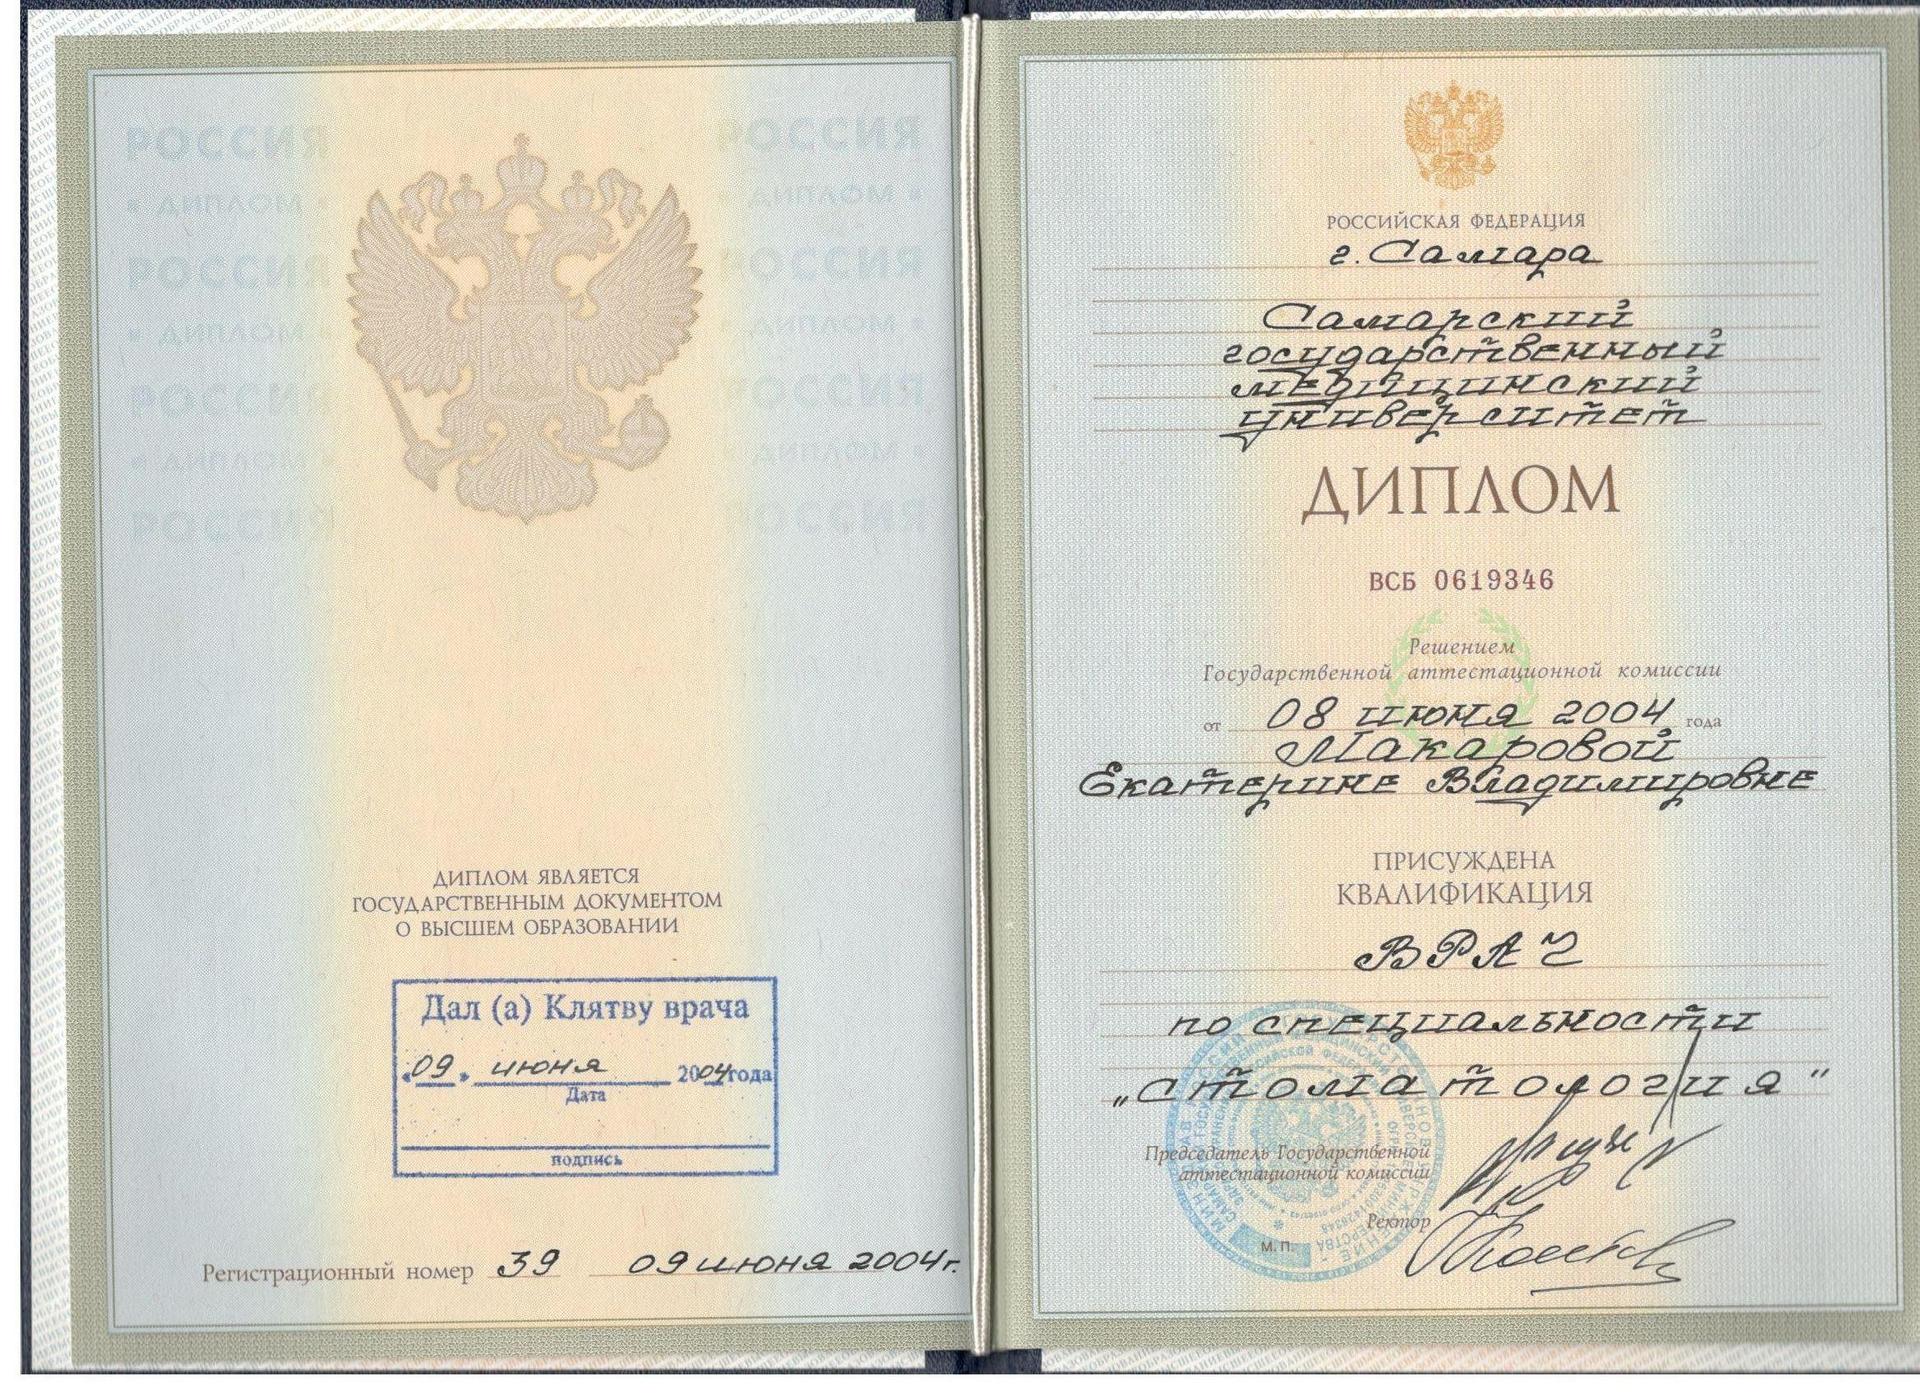 РОССИЯ РОССИЯ
« ДИПЛОМ « « ДИПЛОМ «
РОССИЯ РОССИЯ
« ДИПЛОМ « « ДИПЛОМ «
РОССИЯ РОССИЯ
« ДИПЛОМ « « ДИПЛОМ «
РОССИЯ РОССИЯ
ДИПЛОМ ЯВЛЯЕТСЯ
ГОСУДАРСТВЕННЫМ ДОКУМЕНТОМ
О ВЫСШЕМ ОБРАЗОВАНИИ
Дал (а) Клятву врача
«09» июня 2004 года
Дата
подпись
Регистрационный номер 39 09 июня 2004г.
РОССИЙСКАЯ ФЕДЕРАЦИЯ
г. Самара
Самарский
государственный
медицинский
университет
ДИПЛОМ
ВСБ 0619346
Решением
Государственной аттестационной комиссии
от 08 июня 2004 года
Макаровой
Екатерине Владимировне
ПРИСУЖДЕНА
КВАЛИФИКАЦИЯ
ВРАЧ
по специальности
„Стоматология"
Председатель Государственной
аттестационной комиссии
Ректор
М. П.